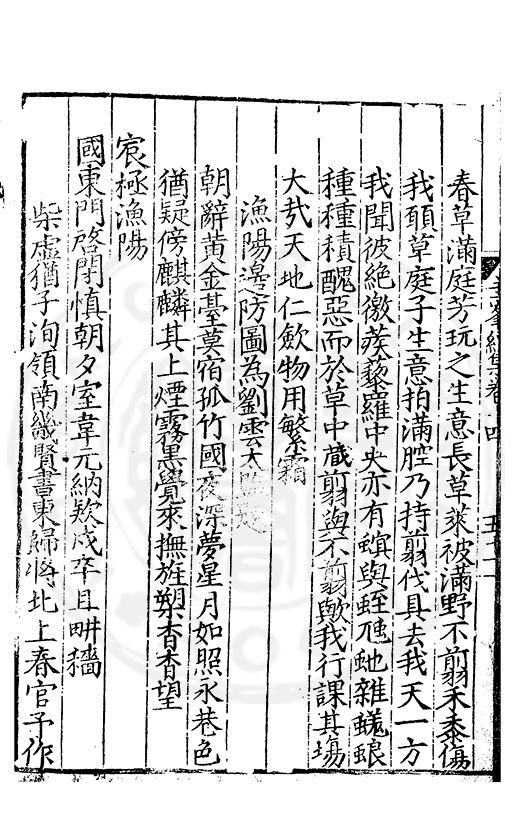 春草滿庭芳玩之生意長草萊被滿野不剪禾黍傷
我頤草庭子生意拍滿腔乃持剪伐具去我天一方
我聞彼絕徼蒺藜羅中央亦有蝮與蛭虺虵雜蜣蜋
種種積醜惡而於草中藏剪與不剪歟我行課其塲
大哉天地仁歛物用繁霜
漁陽邊防圖為劉雲太
朝辭黃金臺莫宿孤竹國夜深夢星月如照永巷色
猶疑傍麒麟其上煙霧黑覺來撫旌槊杳杳望
宸極漁陽
國東門啓閉慎朝夕室韋元納欵戍卒且畊穡
柴虛猶子洵領南畿賢書東歸將北上春官予作